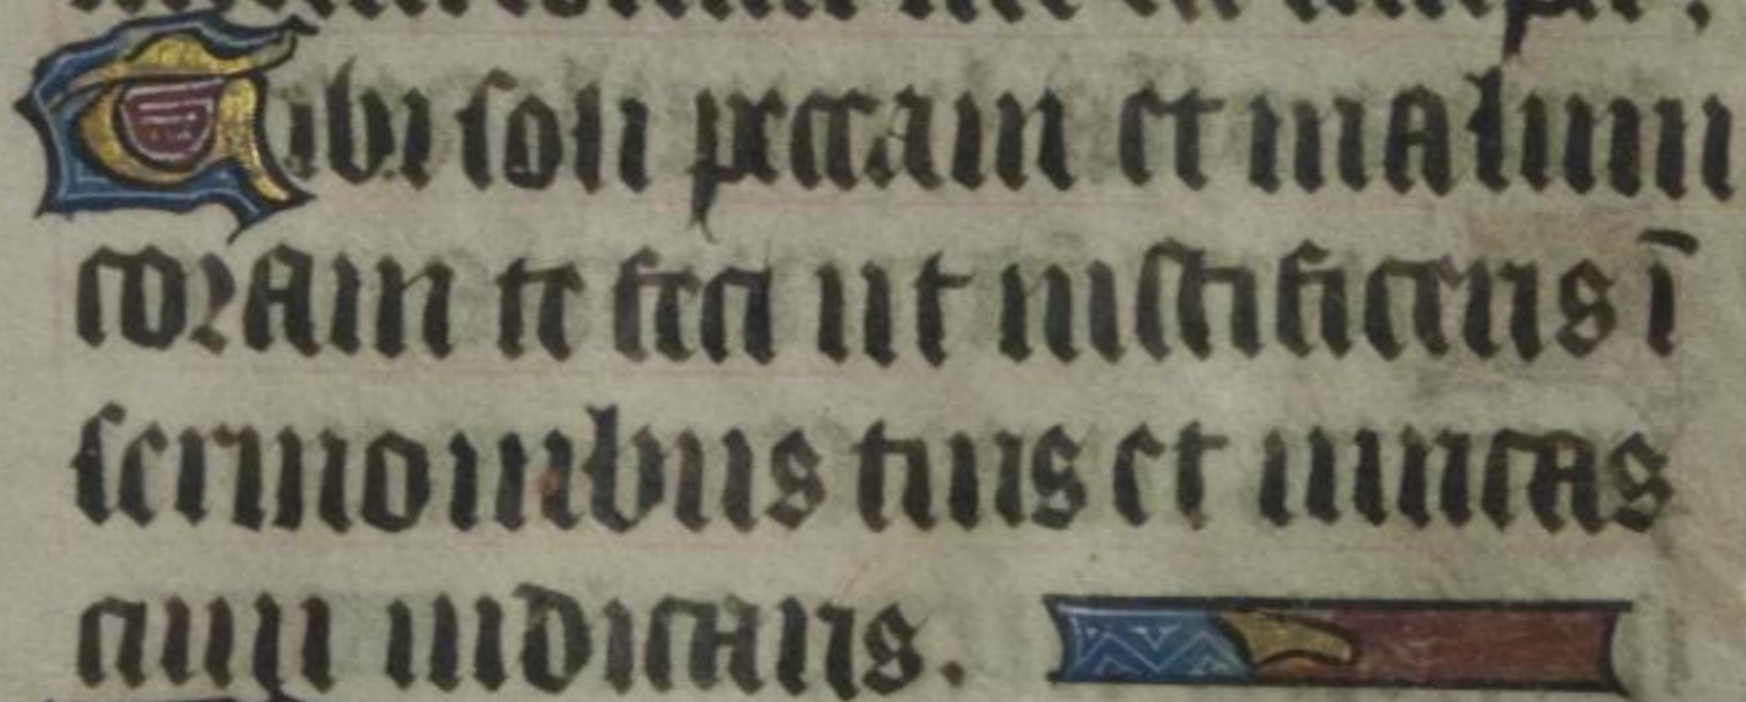 Tibi soli peccaui et malum
coram te feci ut iustificeris ī
sermonibus tuis et uincas
cum iudicaris.